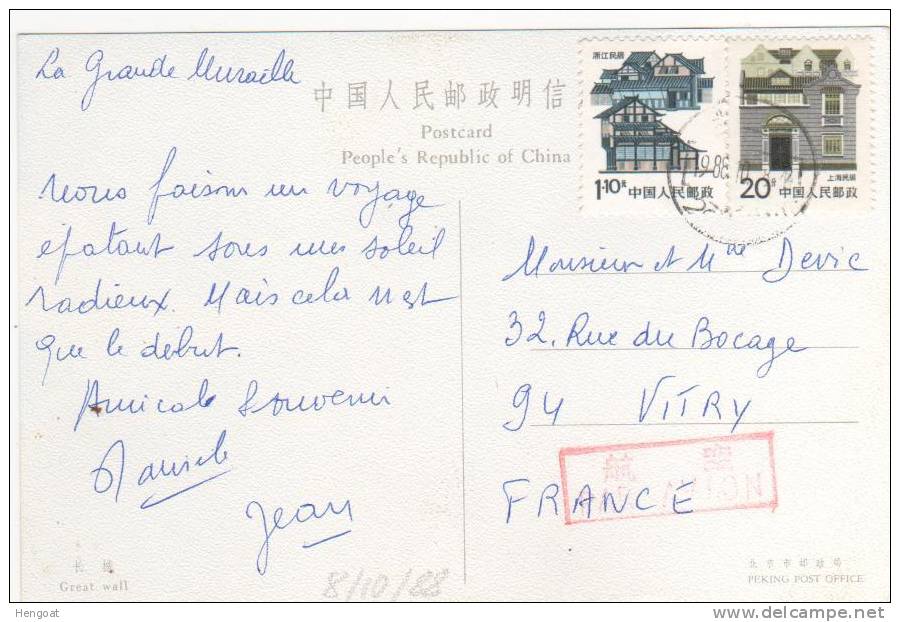 La Grande Muraille
中国人民邮政明信
Postcard
People's Republic of China
浙江民居
1·10元 中国人民邮政
上海民居
20分 中国人民邮政
Nous faisons un voyage
épatant sous un soleil
radieux. Mais cela n'est
que le début.
Amical Souvenir
Jean
Monsieur et Mme Devic
32, Rue du Bocage
94 VITRY
FRANCE
航空
PAR AVION
长城
Great wall
8/10/88
北京市邮政局
PEKING POST OFFICE
Hengoat
www.delcampe.net